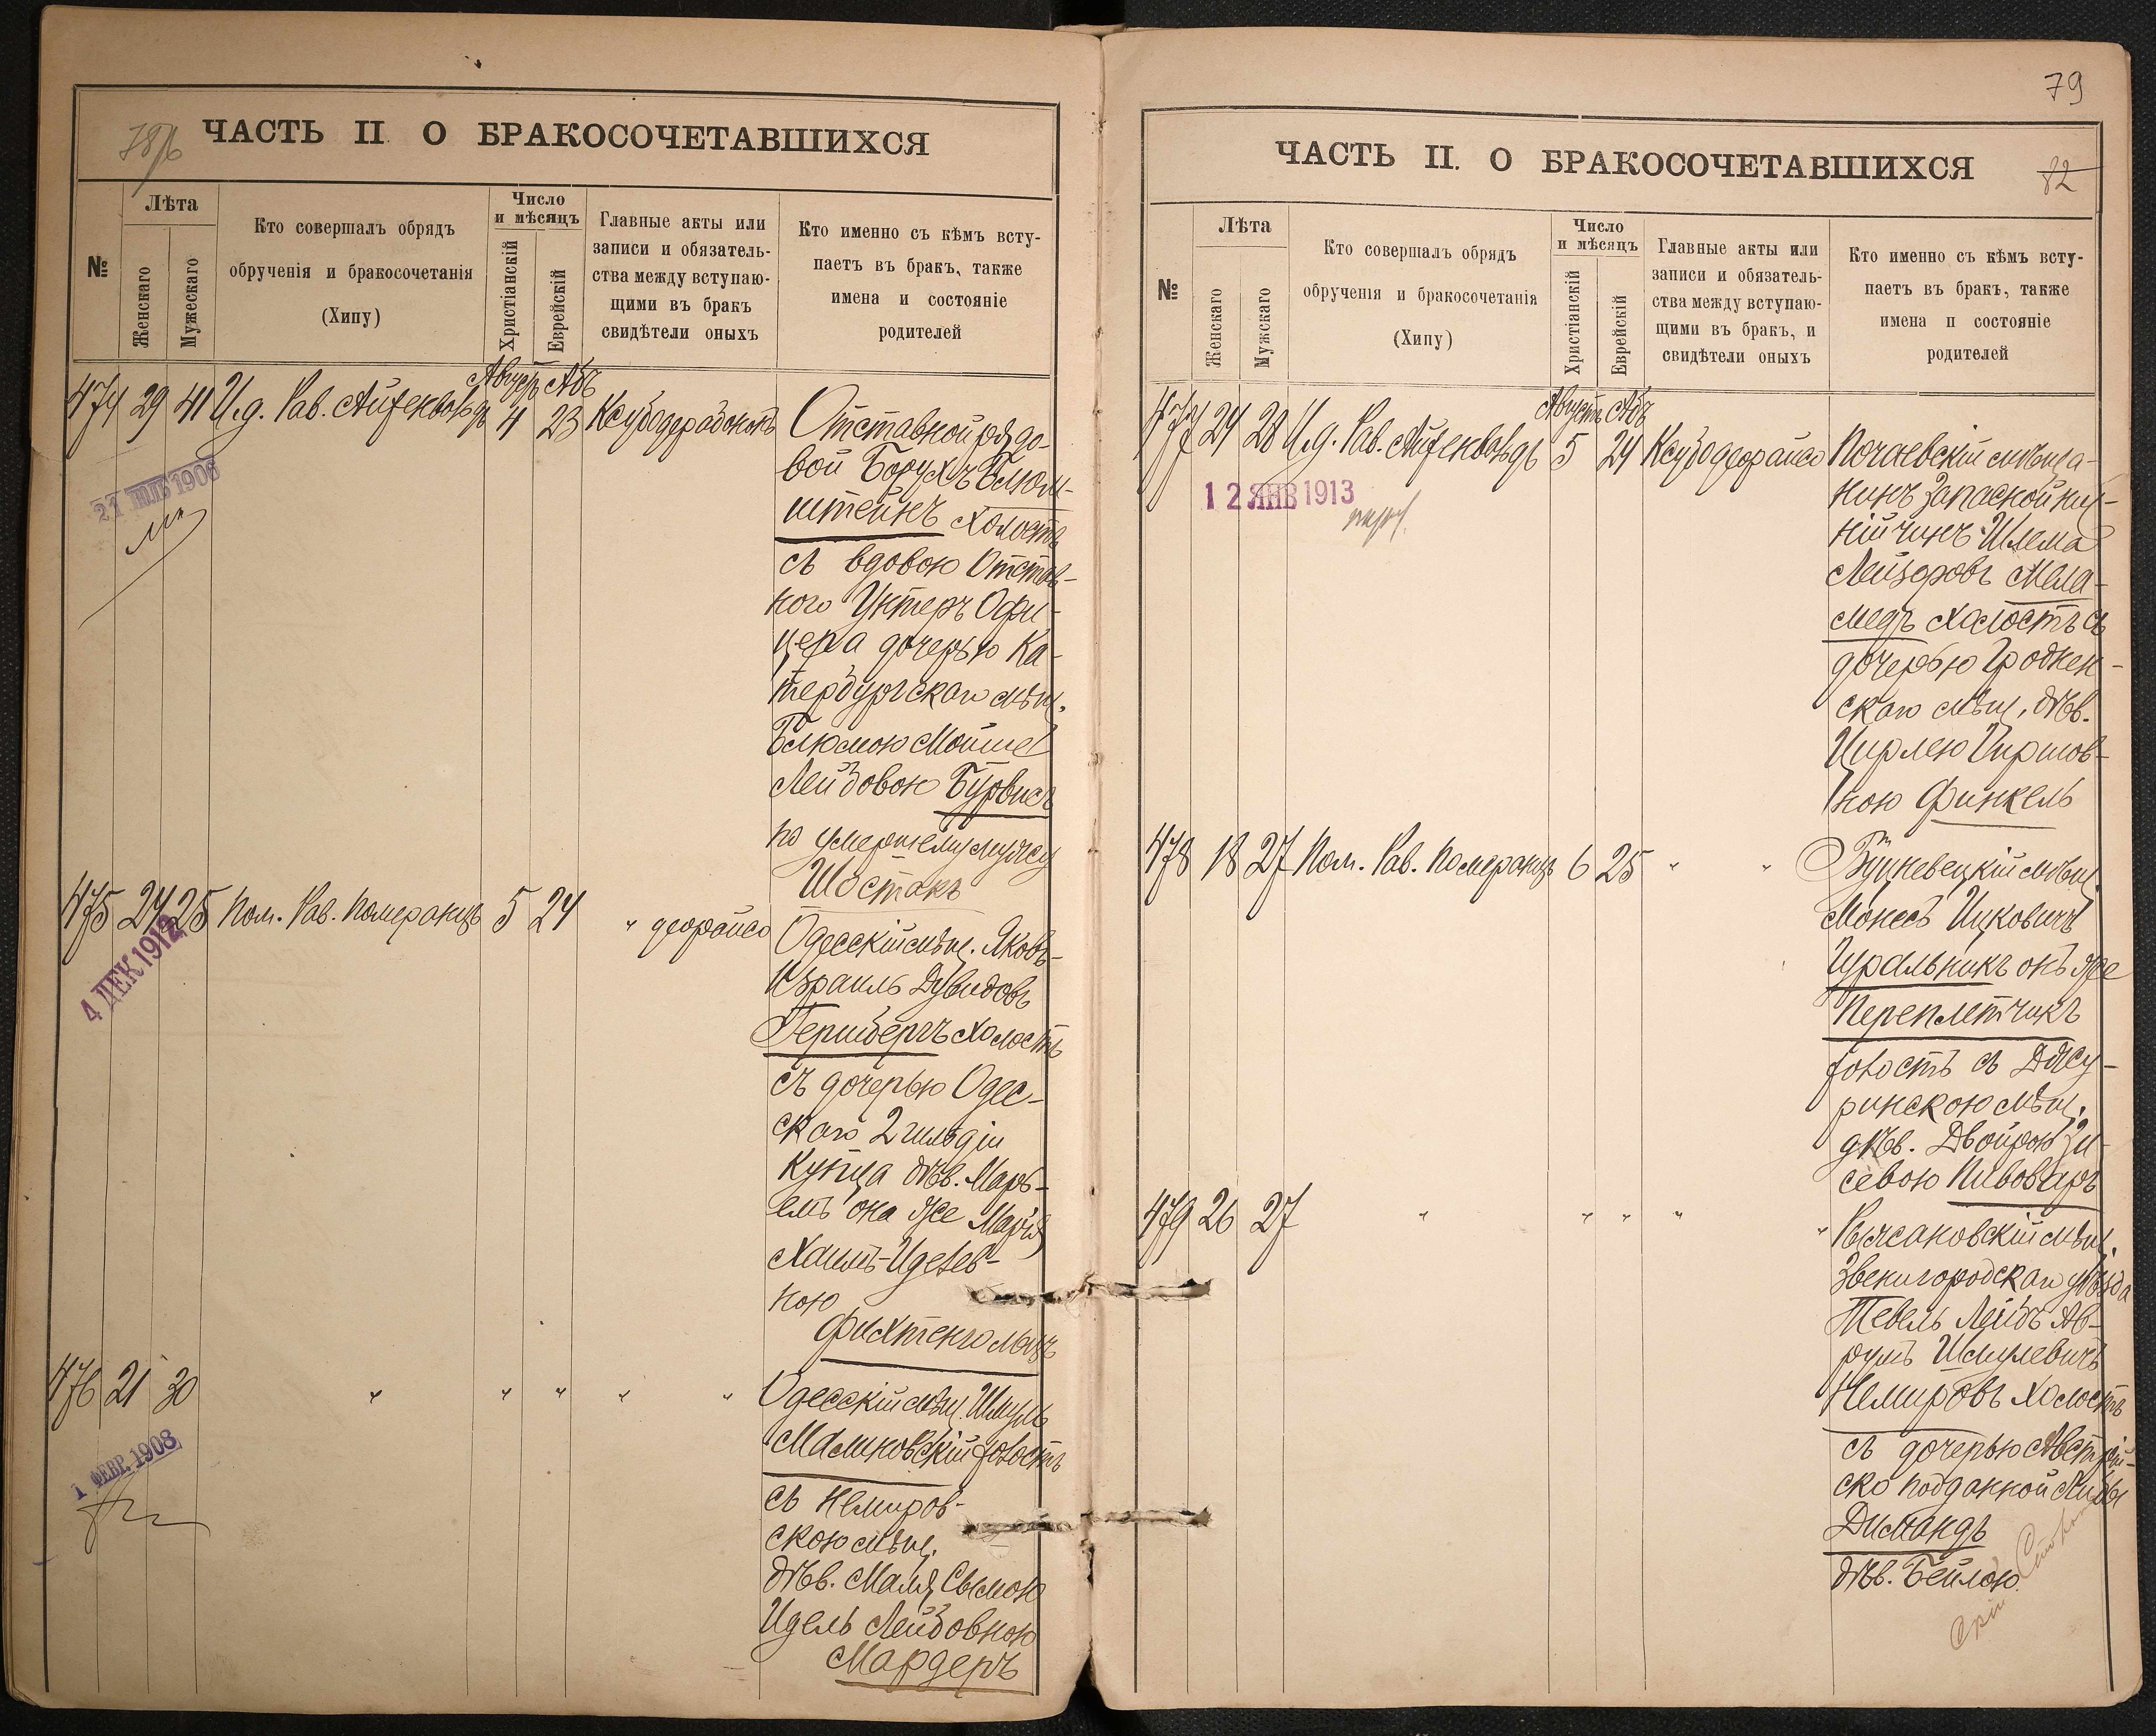 78/б
ЧАСТЬ II О БРАКОСОЧЕТАВШИХСЯ
№
Лѣта
Женскаго
Мужескаго
Кто совершалъ обрядъ
обрученія и бракосочетанія
(Хипу)
Число
и мѣсяцъ
Христіанскій
Еврейскій
Главные акты или
записи и обязатель-
ства между вступаю-
щими въ бракъ
свидѣтели оныхъ
Кто именно съ кѣмъ всту-
паетъ въ бракъ, также
имена и состояніе
родителей
Августъ Абъ
474 29 41 И.д. Рав. Айзенвольдъ 4 23
21 1906
Отставной рядо-
вой Борухъ Блюм-
штейнъ холостъ
съ вдовою Отстав-
ного Унтеръ Офи-
цера дочерью Ка-
тербургскаго мѣщ.
Блюмою Мойше
Лейбовою Бурвисъ
по умершему мужу
Шостакъ
475 24 25 Пом. Рав. Померанцъ 5 24 " деорайсо
4 ДЕК 1912
Одесскій мѣщ. Яковъ-
Израиль Дувидовъ
Гершбергъ холостъ
съ дочерью Одес-
скаго 2 гильдіи
Купца дѣв. Марь-
емъ она же Марія
Хаимъ-Иделев-
ною
Фихтенгольцъ
476 21 30 " " " " "
1 ФЕВР. 1908
Одесскій мѣщ. Шмуль
Малиновскій холостъ
съ Немиров-
скою мѣщ.
дѣв. Маля Сымою
Идель Лейбовною
Мардеръ
79
ЧАСТЬ II. О БРАКОСОЧЕТАВШИХСЯ
82
№
Лѣта
Женскаго
Мужскаго
Кто совершалъ обрядъ
обрученія и бракосочетанія
(Хипу)
Число
и мѣсяцъ
Христіанскій
Еврейскій
Главные акты или
записи и обязатель-
ства между вступаю-
щими въ бракъ, и
свидѣтели оныхъ
Кто именно съ кѣмъ всту-
паетъ въ бракъ, также
имена и состояніе
родителей
Августъ Абъ
477 24 28 И.д. Рав. Айзенвольдъ 5 24 Ксубо деорайсо
12 ЯНВ 1913
Почаевскій мѣща-
нинъ Запасной ниж-
ній чинъ Шлема
Лейзоровъ Мела-
медъ холостъ съ
дочерью Гроднен-
скаго мѣщ. дѣв.
Цирлею Гиршов-
ною Финкель
478 18 27 Пом. Рав. Померанцъ 6 25 " "
мѣщ.
Монесъ Ицковичъ
Гуральникъ онъ же
Переплетчикъ
холостъ съ Джу-
ринскою мѣщ.
дѣв. Двойрою Зи-
севою Пивоваръ
479 26 27 " " " " "
мѣщ.
Звенигородскаго уѣзда
Тевель Лейбъ Ав-
румъ Шмулевичъ
Немировъ холостъ
съ дочерью Австрій-
ско подданной
Димандъ
дѣв. Бейлою